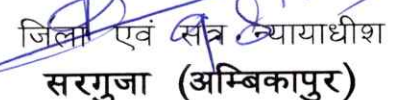 जिला एवं सत्र न्यायाधीश
सरगुजा (अम्बिकापुर)